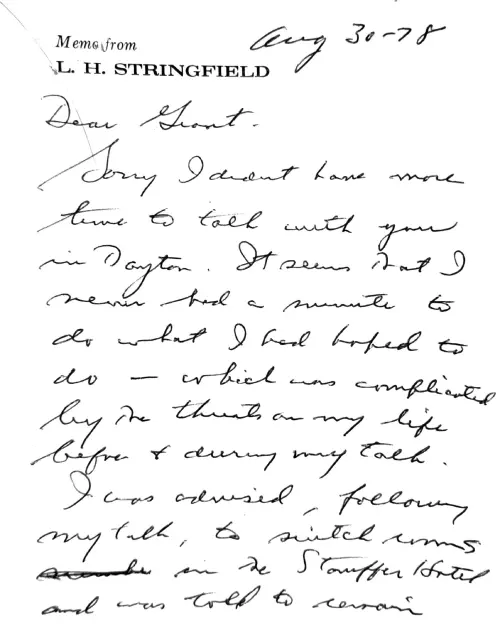 Memo from
L. H. STRINGFIELD
Aug 30-78
Dear Grant.
Sorry I didn't have more
time to talk with you
in Dayton. It seems that I
never had a minute to
do what I had hoped to
do — which was complicated
by the threats on my life
before & during my talk.
I was advised, following
my talk, to switch rooms
in the Stouffer Hotel
and was told to remain